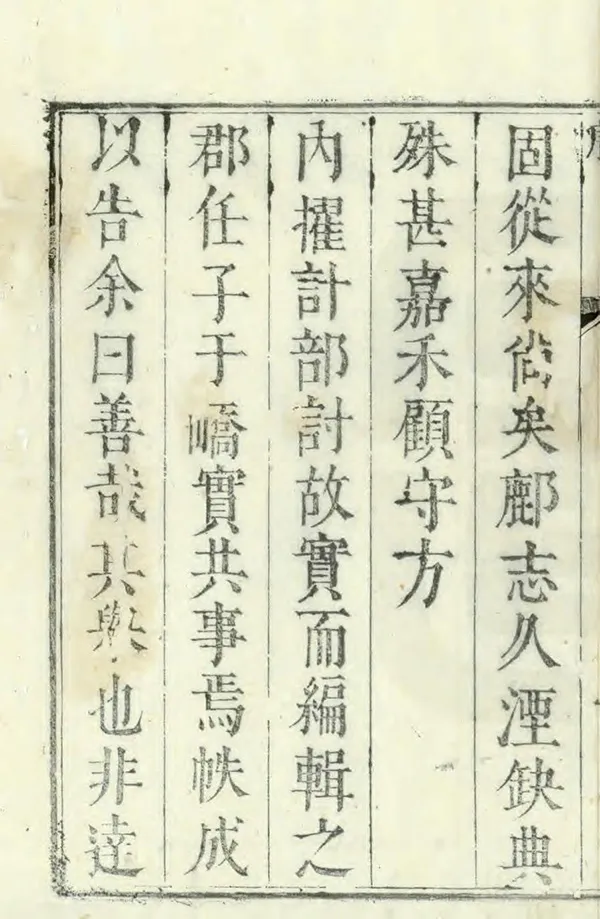 固從來尚矣鄜志久湮缺典
殊甚嘉禾顧守方
內擢計部討故實而編輯之
郡任子于嶠實共事焉帙成
以告余曰善哉其舉也非達